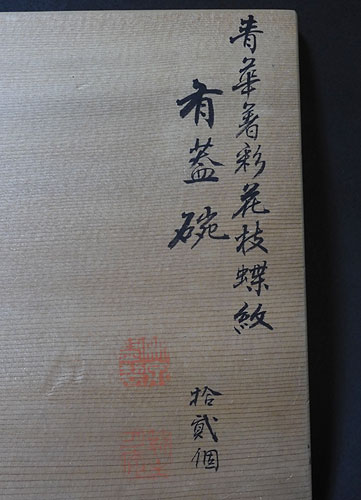 青華着彩花枝蝶紋
有蓋碗
拾貮個